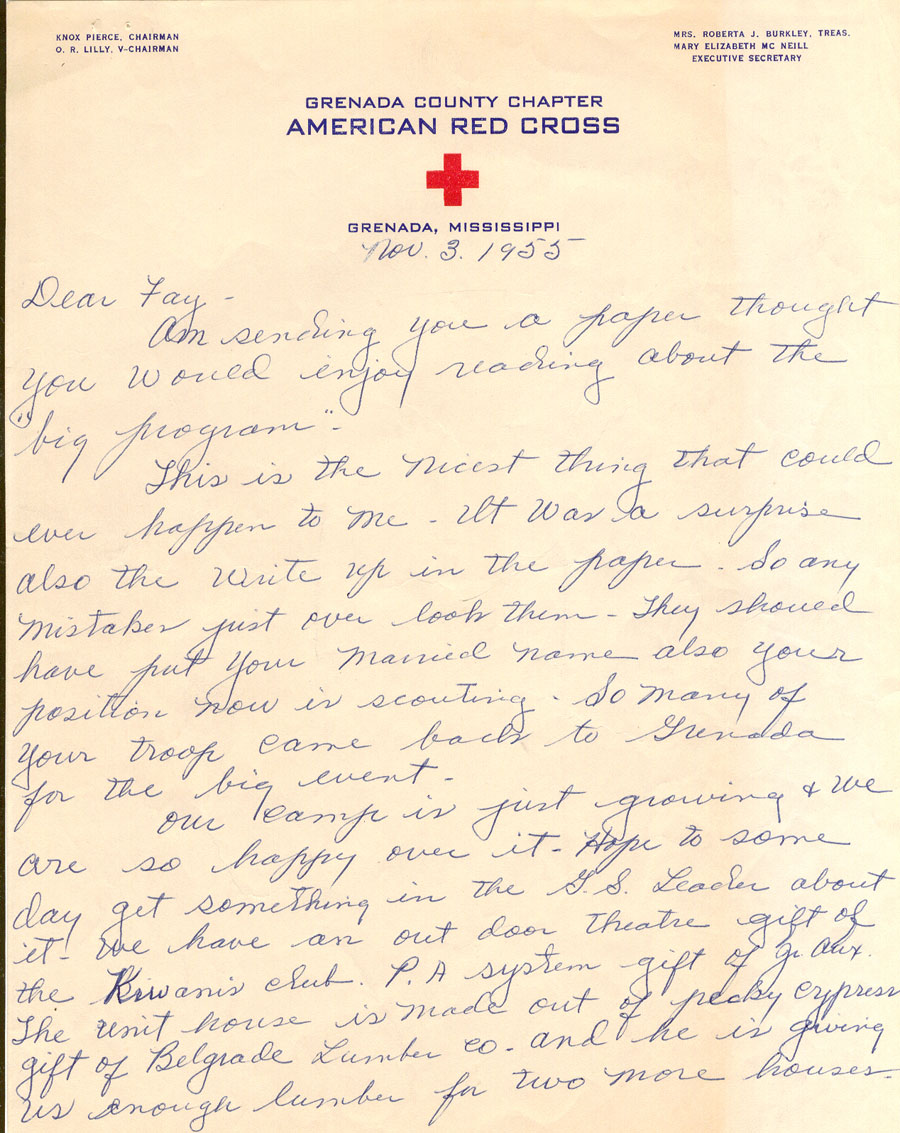 KNOX PIERCE, CHAIRMAN
O. R. LILLY, V-CHAIRMAN
MRS. ROBERTA J. BURKLEY, TREAS.
MARY ELIZABETH MC NEILL
EXECUTIVE SECRETARY
GRENADA COUNTY CHAPTER
AMERICAN RED CROSS
GRENADA, MISSISSIPPI
Nov. 3. 1955
Dear Fay -
Am sending you a paper thought
you would enjoy reading about the
"big program".
This is the nicest thing that could
ever happen to me - It was a surprise
also the write up in the paper. So any
mistakes just over look them - They should
have put your married name also your
position now in scouting. So many of
your troop came back to Grenada
for the big event -
Our camp is just growing & we
are so happy over it - Hope to some
day get something in the G. S. Leader about
it - We have an out door theatre gift of
the Kiwanis club. P. A system gift of Jr Aux.
The unit house is made out of pecky cypress
gift of Belgrade Lumber Co - and he is giving
us enough lumber for two more houses -